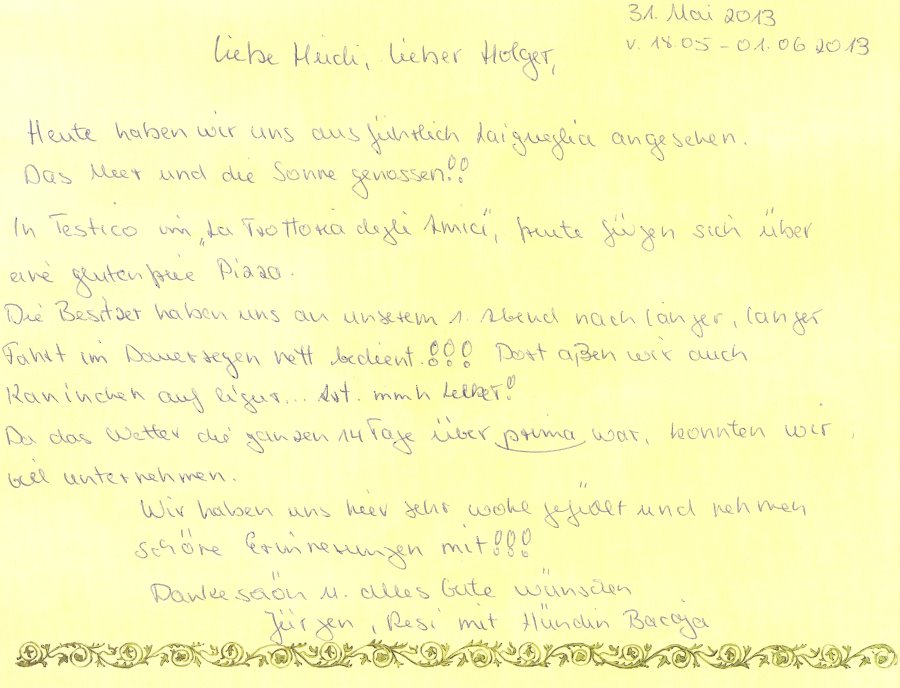 31. Mai 2013
v. 18.05 - 01.06 2013
Liebe Heidi, lieber Holger,
Heute haben wir uns ausführlich Laigueglia angesehen.
Das Meer und die Sonne genossen!!
In Testico im „La Trottoria degli Amici", freute Jürgen sich über
eine glutenfreie Pizza.
Die Besitzer haben uns an unserem 1. Abend nach langer, langer
Fahrt im Dauerregen nett bedient.!!! Dort aßen wir auch
Kaninchen auf ligur... Art. mmh lecker!
Da das Wetter die ganzen 14 Tage über prima war, konnten wir
viel unternehmen.
Wir haben uns hier sehr wohl gefühlt und nehmen
schöne Erinnerungen mit!!!
Dankeschön u. alles Gute wünschen
Jürgen, Resi mit Hündin